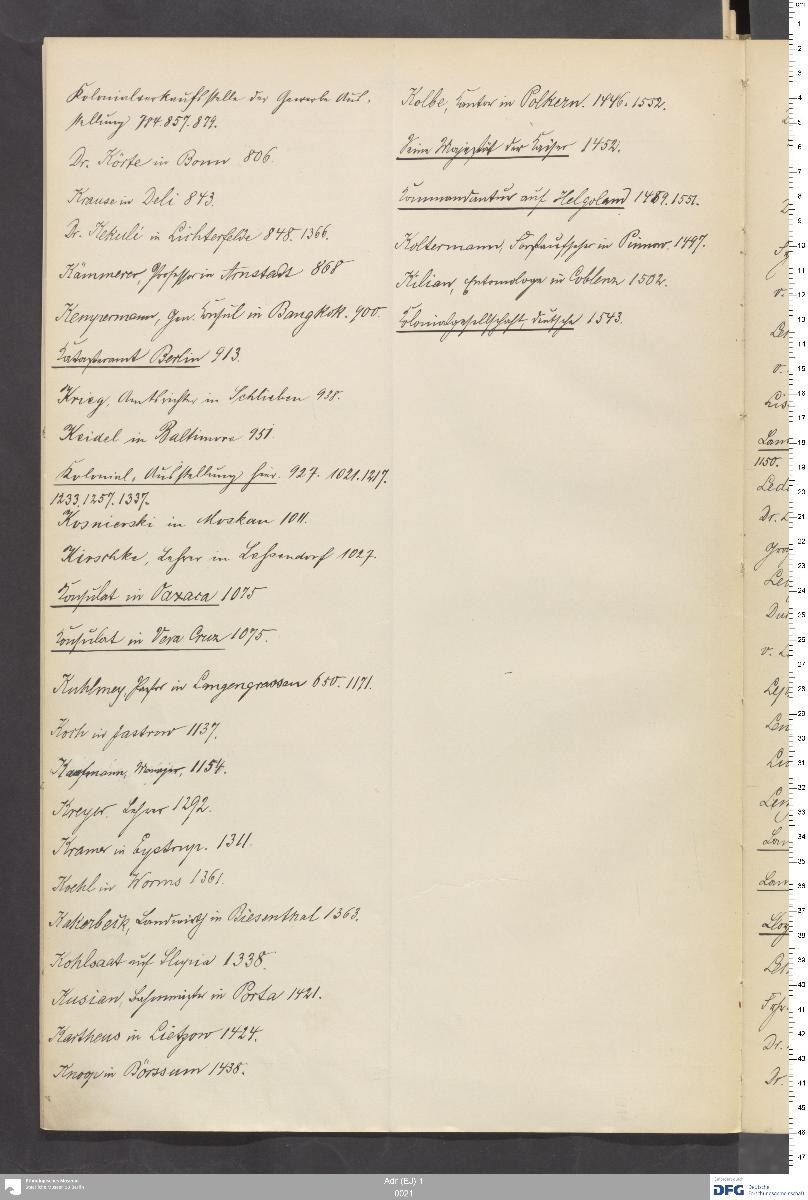 Kolonialverkaufsstelle der Gewerbe Aus-
stellung 784. 857. 879.
Dr. Körte in Bonn 806.
Krause in Deli 843.
Dr. Kekulé in Lichterfelde 848. 1366.
Kämmerer, Professor in Arnstadt 868
Kempermann, Gen. Consul in Bangkok. 900.
Katasteramt Berlin 913.
Krieg, Amtsrichter in Schlieben 938.
Keidel in Baltimore 951.
Kolonial-Ausstellung hier. 927. 1021. 1217.
1233. 1257. 1337.
Kosnierski in Moskau 1011.
Kirschke, Lehrer in Lahsendorf 1027.
Konsulat in Oaxaca 1075
Konsulat in Vera Cruz 1075.
Kuhlmey, Pastor in Langengrassau 650. 1171.
Koch in Jastrow 1137.
Kaufmann, Manager, 1154.
Kreyer, Lehrer 1292.
Kramer in Eystrup. 1311.
Koehl in Worms 1361.
Kakerbeck, Landwirth in Biesenthal 1363.
Kohlsaat auf Slupia 1338.
Kusian, Bahnmeister in Porta 1421.
Kartheus in Lietzow 1424.
Knoop in Börssum 1438.
Kolbe, Kantor in Polkern. 1446. 1552.
Seine Majestät der Kaiser 1452.
Kommandantur auf Helgoland 1489. 1551.
Koltermann, Forstaufseher in Pinnow. 1497.
Kilian, Entomologe in Coblenz 1502.
Kolonialgesellschaft, deutsche 1543.
Ethnologisches Museum
Staatliche Museen zu Berlin
Adr (EJ) 1
0021
DFG Deutsche
Forschungsgemeinschaft